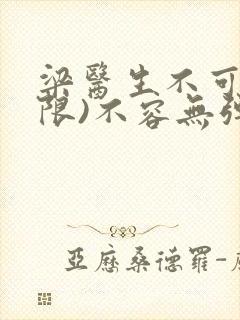 梁醫生不可
限)不容無弹
亞歷桑德羅-